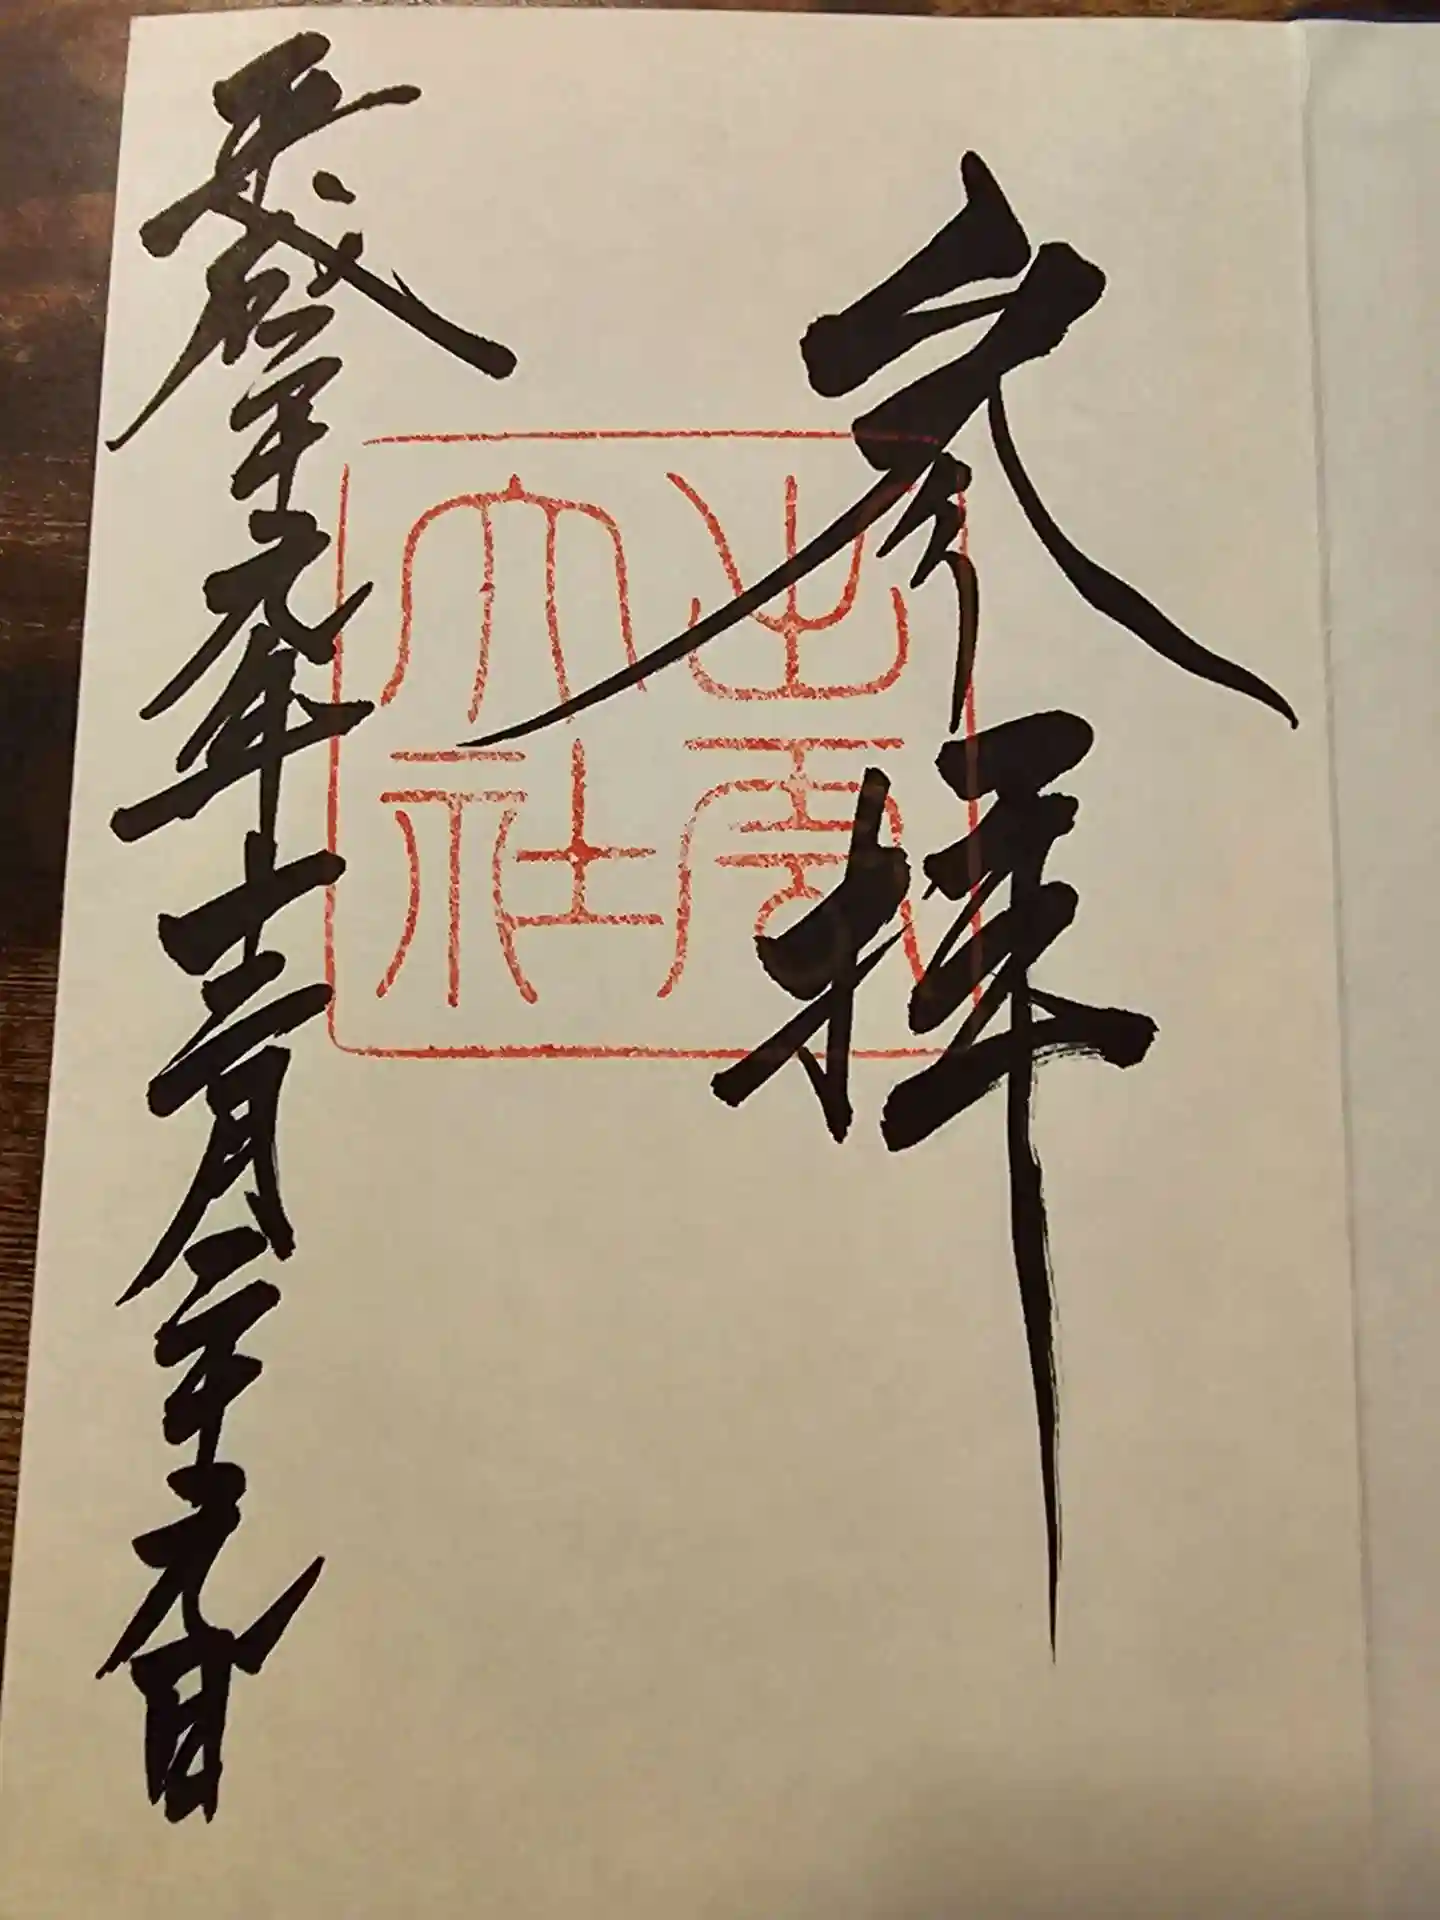 参拝
出雲大社
平成二十九年十二月二十九日